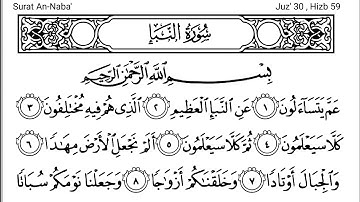 Surat An-Naba' Juz' 30 , Hizb 59
سُورَةُ النَّبَإِ
بِسْمِ ٱللَّهِ ٱلرَّحْمَٰنِ ٱلرَّحِيمِ
عَمَّ يَتَسَآءَلُونَ ١ عَنِ ٱلنَّبَإِ ٱلْعَظِيمِ ٢ ٱلَّذِى هُمْ فِيهِ مُخْتَلِفُونَ ٣
كَلَّا سَيَعْلَمُونَ ٤ ثُمَّ كَلَّا سَيَعْلَمُونَ ٥ أَلَمْ نَجْعَلِ ٱلْأَرْضَ مِهَٰدًا ٦
وَٱلْجِبَالَ أَوْتَادًا ٧ وَخَلَقْنَٰكُمْ أَزْوَٰجًا ٨ وَجَعَلْنَا نَوْمَكُمْ سُبَاتًا